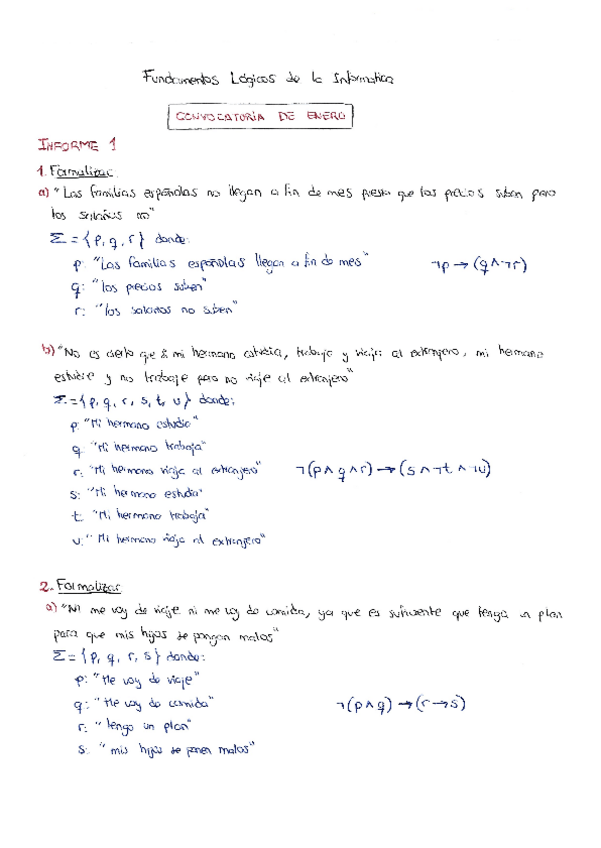 Fundamentos Lógicos de la Informática
CONVOCATORIA DE ENERO
INFORME 1
1. Formalizar
a) "Las familias españolas no llegan a fin de mes puesto que los precios suben pero
los salarios no"
Σ = {p, q, r} donde:
p: "Las familias españolas llegan a fin de mes" ¬p → (q ∧ ¬r)
q: "los precios suben"
r: "los salarios no suben"
b) "No es cierto que si mi hermano estudia, trabaja y viaja al extranjero, mi hermano
estudie y no trabaje pero no viaje al extranjero"
Σ = {p, q, r, s, t, u} donde:
p: "Mi hermano estudia"
q: "Mi hermano trabaja"
r: "Mi hermano viaja al extranjero" ¬(p ∧ q ∧ r) → (s ∧ ¬t ∧ ¬u)
s: "Mi hermano estudia"
t: "Mi hermano trabaja"
u: "Mi hermano viaja al extranjero"
2. Formalizar
a) "Ni me voy de viaje ni me voy de comida, ya que es suficiente que tenga un plan
para que mis hijos se pongan malos"
Σ = {p, q, r, s} donde:
p: "Me voy de viaje"
q: "Me voy de comida" ¬(p ∧ q) → (r → s)
r: "tengo un plan"
s: "mis hijos se ponen malos"